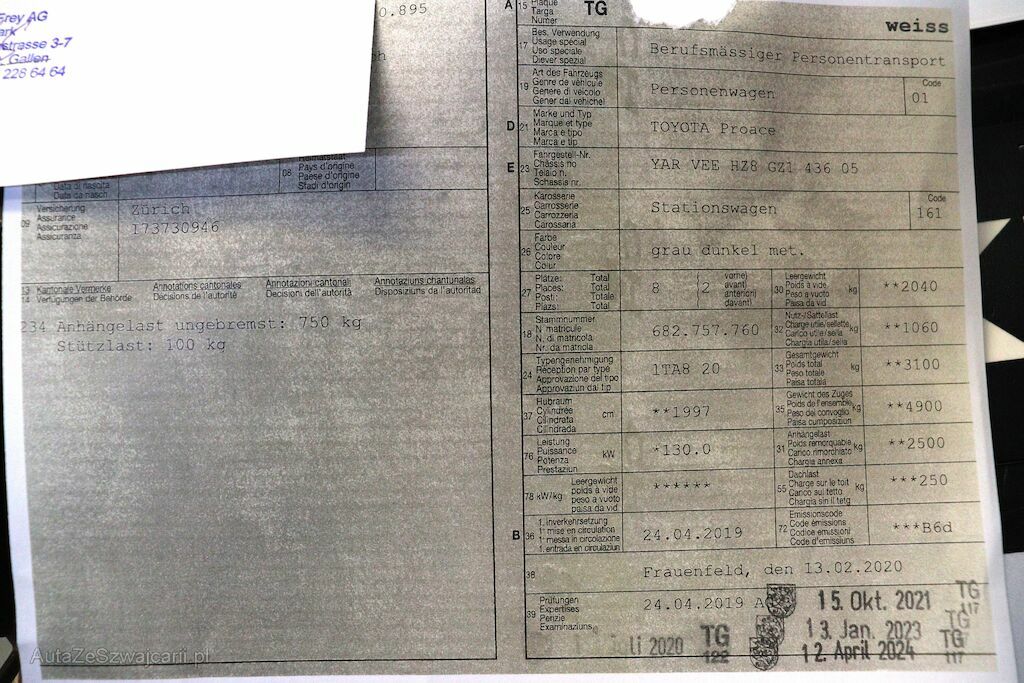 Frey AG
ark
strasse 3-7
Gallen
228 64 64
0.895
A 15 Plaque
Targa
Numer
TG
weiss
17 Bes. Verwendung
Usage spécial
Uso speciale
Diever spezial
Berufsmässiger Personentransport
19 Art des Fahrzeugs
Genre de véhicule
Genere di veicolo
Gener dal vehichel
Personenwagen
Code
01
D 21 Marke und Typ
Marque et type
Marca e tipo
Marca e tip
TOYOTA Proace
E 23 Fahrgestell-Nr.
Châssis no
Telaio n.
Schassis nr.
YAR VEE HZ8 GZ1 436 05
25 Karosserie
Carrosserie
Carrozzeria
Carossaria
Stationswagen
Code
161
26 Farbe
Couleur
Colore
Colur
grau dunkel met.
27 Plätze: Total
Places: Total
Posti: Totale
Plazs: Total
8 (2 vorne)
avant)
anteriori)
davant)
30 Leergewicht
Poids à vide
Peso a vuoto
Paisa da vid
kg
**2040
18 Stammnummer
N matricule
N. di matricola
Nr. da matricla
682.757.760
32 Nutz-/Sattellast
Charge utile/sellette
Carico utile/sella
Chargia utila/sella
kg
**1060
24 Typengenehmigung
Réception par type
Approvazione del tipo
Approvaziun dal tip
1TA8 20
33 Gesamtgewicht
Poids total
Peso totale
Paisa totala
kg
**3100
37 Hubraum
Cylindrée
Cilindrata
Cilindrada
cm
**1997
35 Gewicht des Zuges
Poids de l'ensemble
Peso del convoglio
Paisa cumposiziun
kg
**4900
76 Leistung
Puissance
Potenza
Prestaziun
kW
*130.0
31 Anhängelast
Poids remorquable
Carico rimorchiato
Chargia annexa
kg
**2500
78 kW/kg Leergewicht
poids à vide
peso a vuoto
paisa da vid
******
55 Dachlast
Charge sur le toit
Carico sul tetto
Chargia sin il tetg
kg
***250
B 36 1. Inverkehrsetzung
1 mise en circulation
1 messa in circolazione
1. entrada en circulaziun
24.04.2019
72 Emissionscode
Code émissions
Codice emissioni
Code d'emissiuns
***B6d
38
Frauenfeld, den 13.02.2020
39 Prüfungen
Expertises
Perizie
Examinaziuns
24.04.2019 A
15. Okt. 2021
TG
117
li 2020
TG
122
13. Jan. 2023
TG
12. April 2024
TG
117
Data di nascita
Data da nasch.
08 Heimatstaat
Pays d'origine
Paese d'origine
Stadi d'origin
09 Versicherung
Assurance
Assicurazione
Assicuranza
Zürich
173730946
13 Kantonale Vermerke
14 Verfügungen der Behörde
Annotations cantonales
Décisions de l'autorité
Annotazioni cantonali
Decisioni dell'autorità
Annotaziuns chantunalas
Disposiziuns da l'autoritad
234 Anhängelast ungebremst: 750 kg
Stützlast: 100 kg
AutaZeSzwajcarii.pl